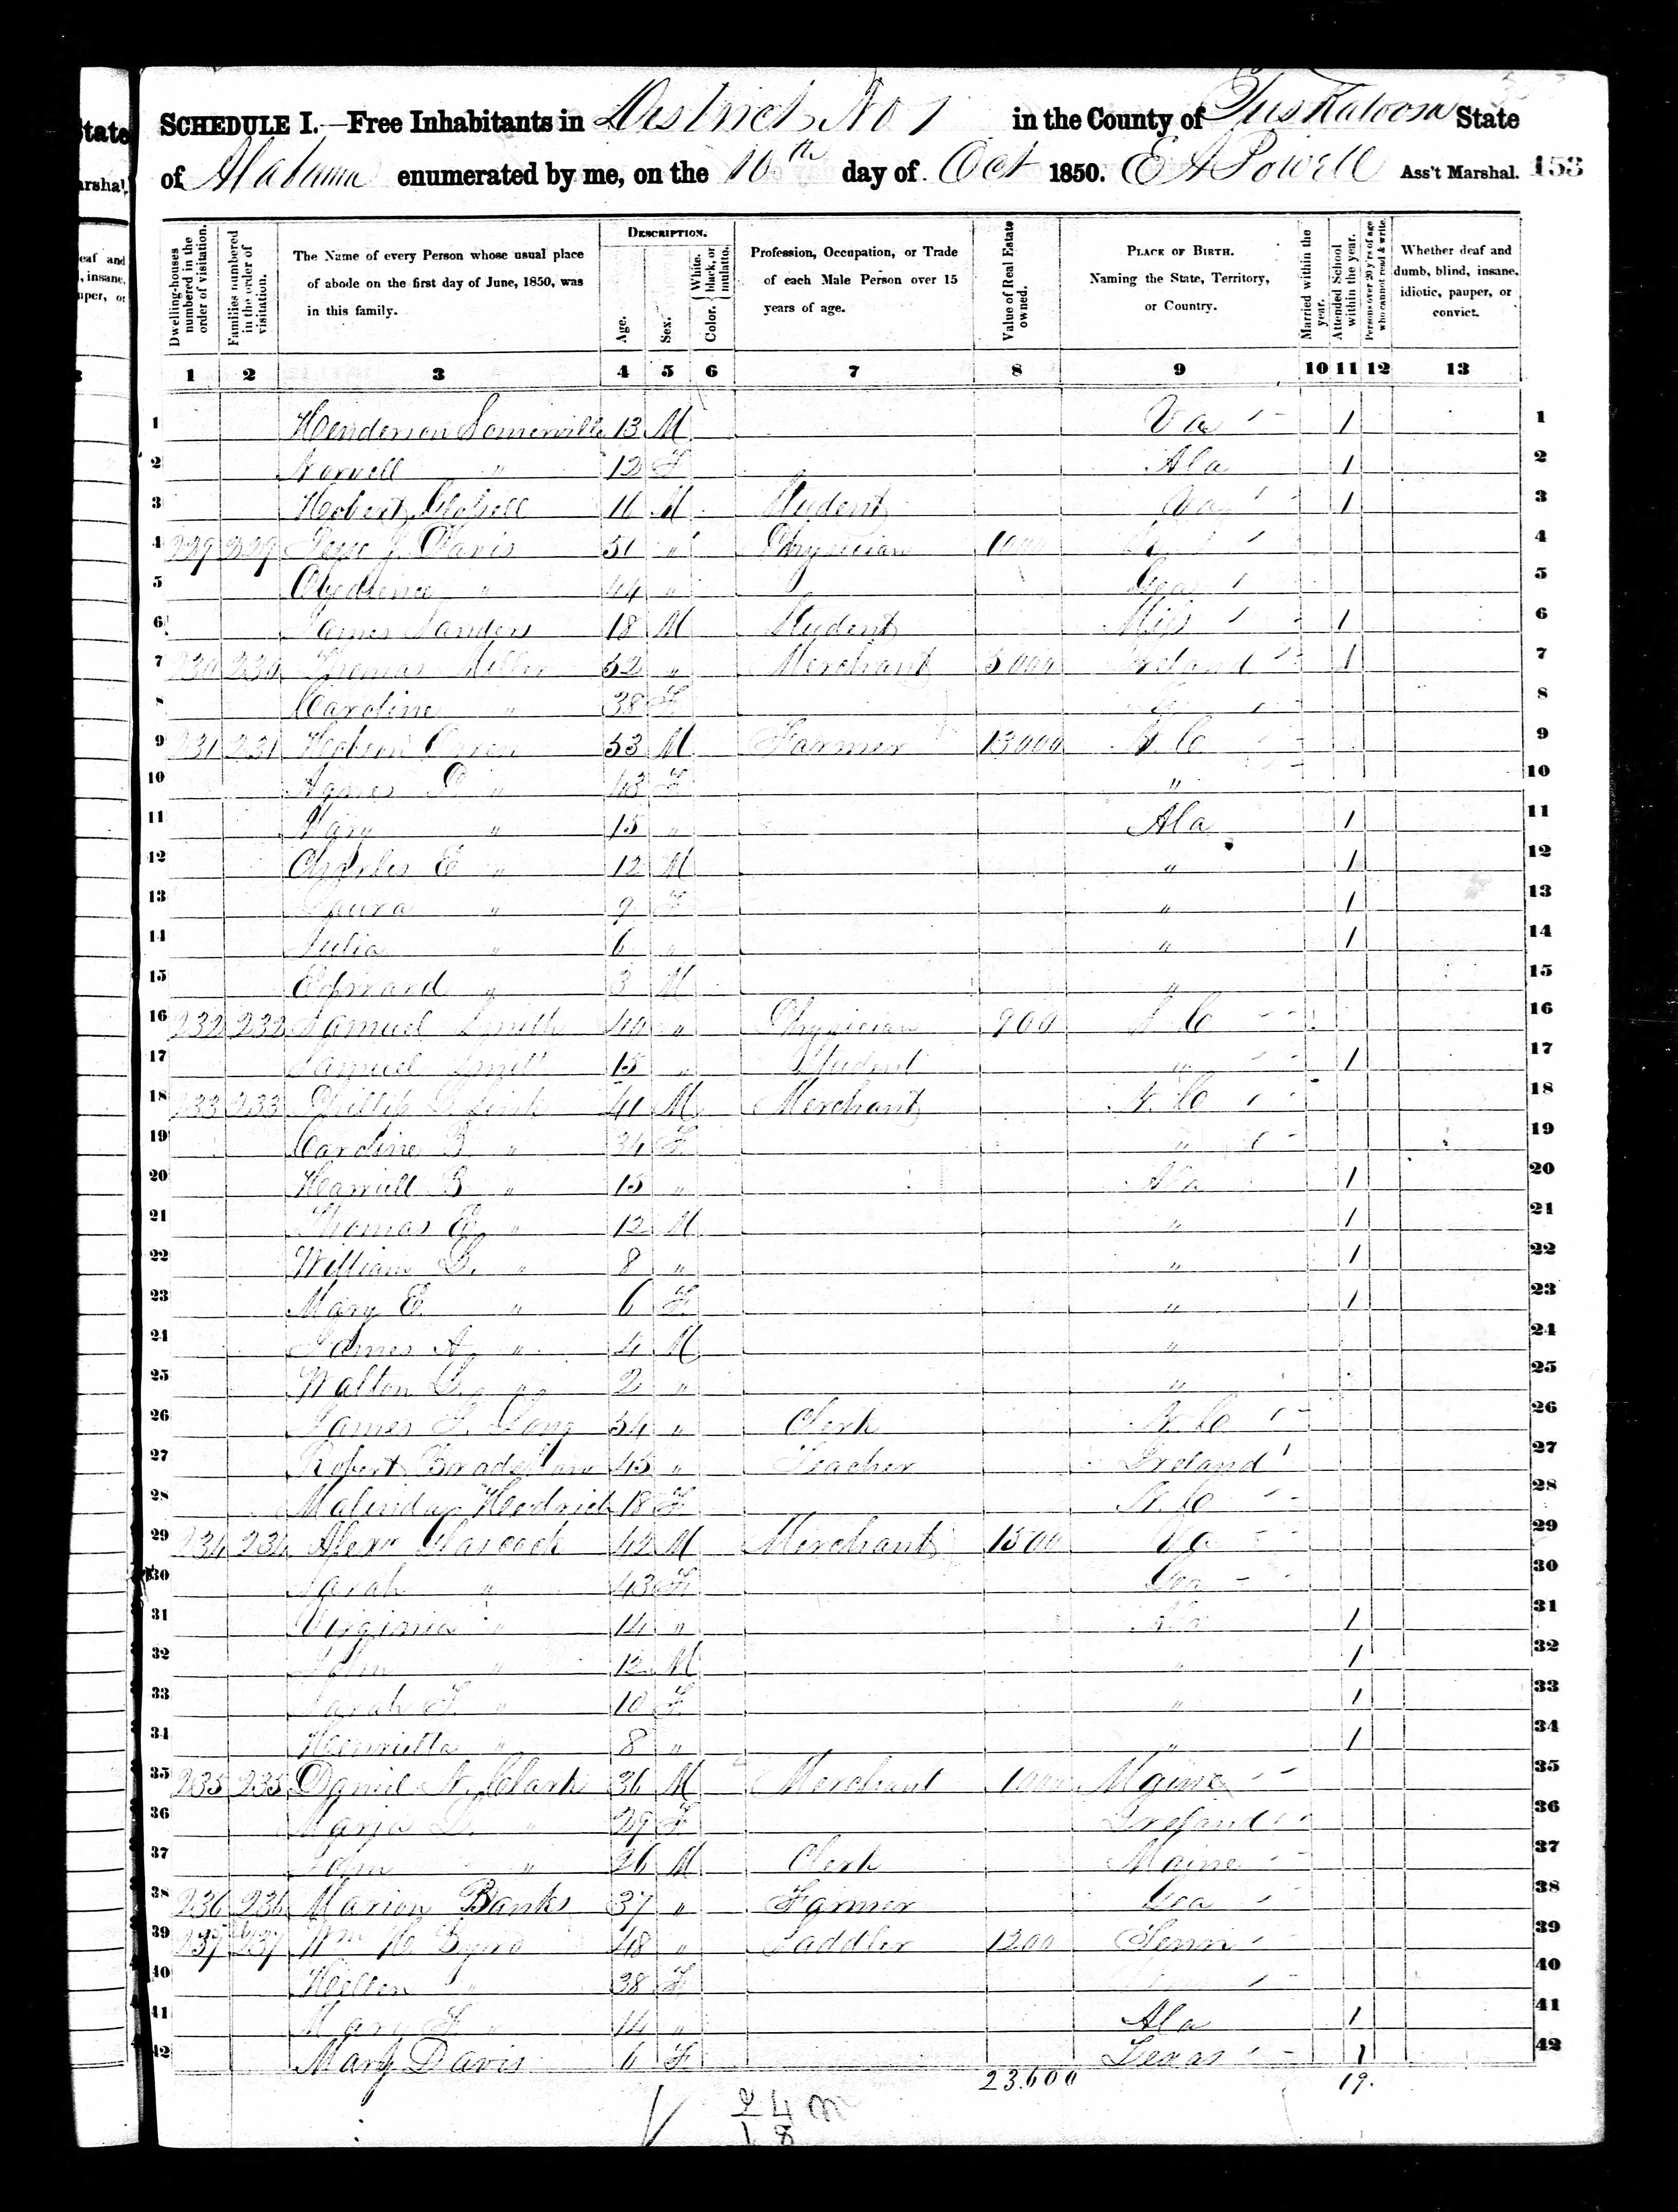 State
arshal.
eaf and
, insane,
uper, or
SCHEDULE I.—Free Inhabitants in District No 1 in the County of Tuskaloosa State
of Alabama enumerated by me, on the 10th day of Oct 1850. E A Powell Ass't Marshal. 153
Dwelling-houses numbered in the order of visitation.
Families numbered in the order of visitation.
The Name of every Person whose usual place of abode on the first day of June, 1850, was in this family.
DESCRIPTION.
Age.
Sex.
Color. { White, black, or mulatto.
Profession, Occupation, or Trade of each Male Person over 15 years of age.
Value of Real Estate owned.
PLACE OF BIRTH. Naming the State, Territory, or Country.
Married within the year.
Attended School within the year.
Persons over 20 y'rs of age who cannot read & write.
Whether deaf and dumb, blind, insane, idiotic, pauper, or convict.
1 2 3 4 5 6 7 8 9 10 11 12 13
1 Henderson Somerville 13 M Va 1 1
2 Norvell " 12 F Ala 1 2
3 16 M Student 1 3
4 229 229 Davis 51 " Physician 1000 4
5 " 44 " Geo 5
6 James Sanders 18 M Student Miss 1 6
7 230 230 Thomas Miller 52 " Merchant 5000 Ireland 1 7
8 Caroline " 38 F 8
9 231 231 53 M Farmer 13000 N. Co 9
10 Agnes " 43 F " 10
11 Mary " 15 " Ala 1 11
12 Charles E " 12 M " 1 12
13 Laura " 9 F " 1 13
14 Julia " 6 " " 1 14
15 Edward " 3 M " 15
16 232 232 Samuel Smith 40 " Physician 900 N. Co 16
17 Samuel Smith 15 " Student " 1 17
18 233 233 Phillip 41 M Merchant N. Co 18
19 Caroline B " 34 F " 19
20 Harriett B " 15 " Ala 1 20
21 Thomas E " 12 M " 1 21
22 William " 8 " " 1 22
23 Mary E. " 6 F " 1 23
24 James A " 4 M " 24
25 Walton " 2 " " 25
26 James Long 54 " Clerk N. Co 26
27 Robert 45 " Teacher Ireland 27
28 Malinda 18 F N. Co 28
29 234 234 Alexr 42 M Merchant 1500 Va 29
30 Sarah " 43 F Geo 30
31 Virginia " 14 " Ala 1 31
32 John " 12 M " 1 32
33 Sarah F. " 10 F " 1 33
34 Henrietta " 8 " " 1 34
35 235 235 Daniel Clark 36 M Merchant 1000 Maine 35
36 " 29 F Ireland 36
37 John " 26 M Clerk Maine 37
38 236 236 Marion Banks 37 " Farmer Geo 38
39 237 237 Wm H Byrd 48 " Saddler 1200 Tenn 39
40 " 38 F 40
41 Mary F " 14 " Ala 1 41
42 Mary Davis 6 F Texas 1 42
23.600 19.
24 m
18